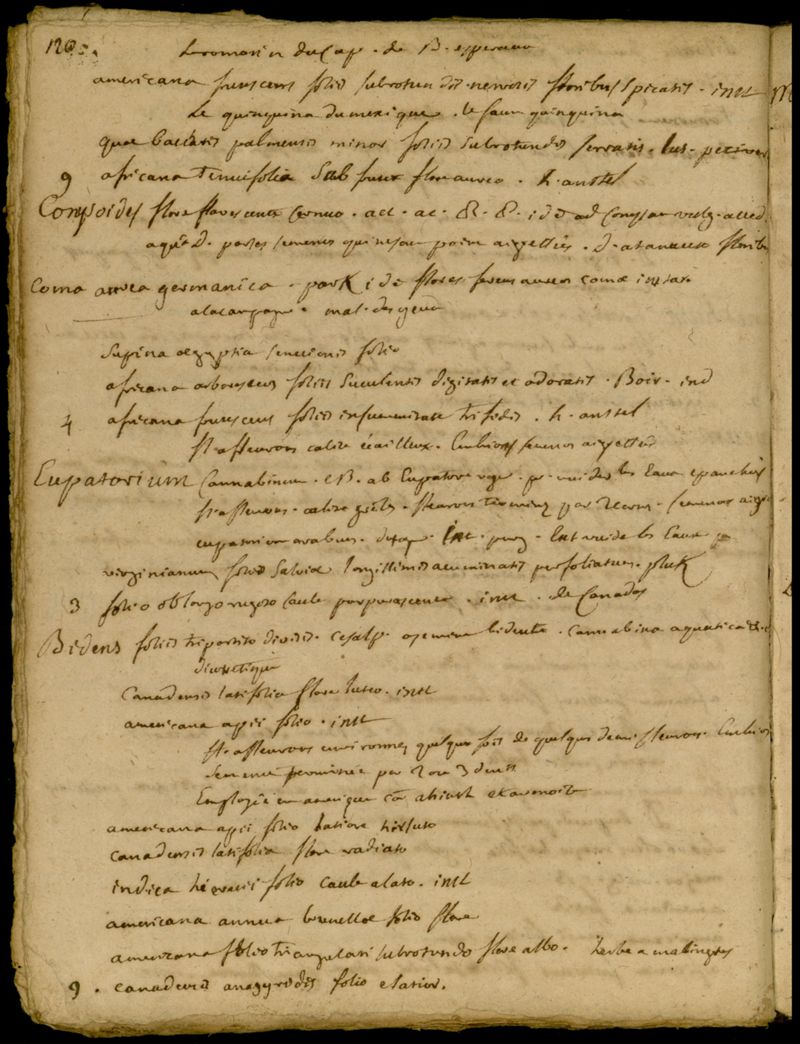 120
Le romarin du Cap. de B. esperance
americana frutescens foliis subrotundis nervosis floribus spicatis. inst
Le quinquina du mexique. le faux quinquina
quae baccharis palmensis minor foliis subrotundis serratis.
9 africana tenuifolia sub frutex flore aureo. h. amstel
Conysoides flore flavescente cernuo. act. ac. R. P. id ad Conysam vulg. acced
a qu D. portes semences qui ne sont point aigrettées.
Coma aurea germanica. park id flores ferens aureos comae instar
mal. des yeux
supina aegyptia senecionis folio
africana arborescens foliis succulentis digitatis et odoratis. Boir. ind
4 africana frutescens foliis in summitate trifidis. h. amstel
fl. a fleurons calice écailleux. Embrions semences aigrettées
Eupatorium Cannabinum. CB. ab Eupatore rege. pr. vuider les Eaux epanchées
fl. a fleurons. calice grêle. fleurons terminez par semences
eupatorium arabum. purg. vuide les Eaux
virginianum foliis salviae longissimis acuminatis perfoliatum. pluk
3 folio oblongo rugoso caule purpurascente. inst. de Canadas
Bidens foliis tripartito divisis. cesalp. a semine bidente. cannabina aquatica
diuretique
Canadensis latifolia flore luteo. inst
americana apii folio. inst
fl. a fleurons environnez quelque fois de quelques demi fleurons. Embrions
semence terminée par 2 ou 3 dents
Employée en amerique
americana apii folio latiore hirsuto
canadensis latifolia flore radiato
indica hieracii folio caule alato. inst
americana annua brunellae folio flore
americana folio triangulari subrotundo flore albo. herbe a malingres
9. canadensis anagyridis folio elatior.